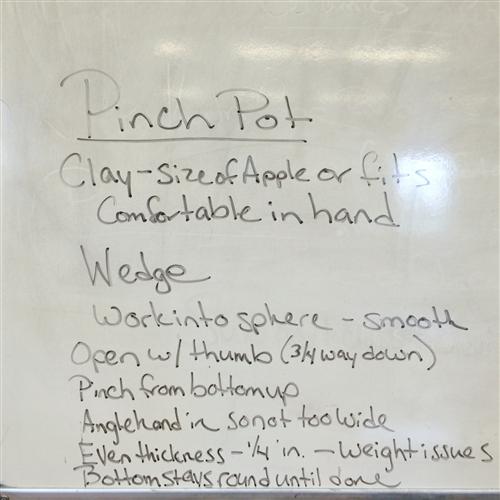 Pinch Pot
Clay - size of Apple or fits
Comfortable in hand
Wedge
Work into sphere - smooth
Open w/ thumb (3/4 way down)
Pinch from bottom up
Angle hand in so not too wide
Even thickness - 1/4 in. - weight issues
Bottom stays round until done